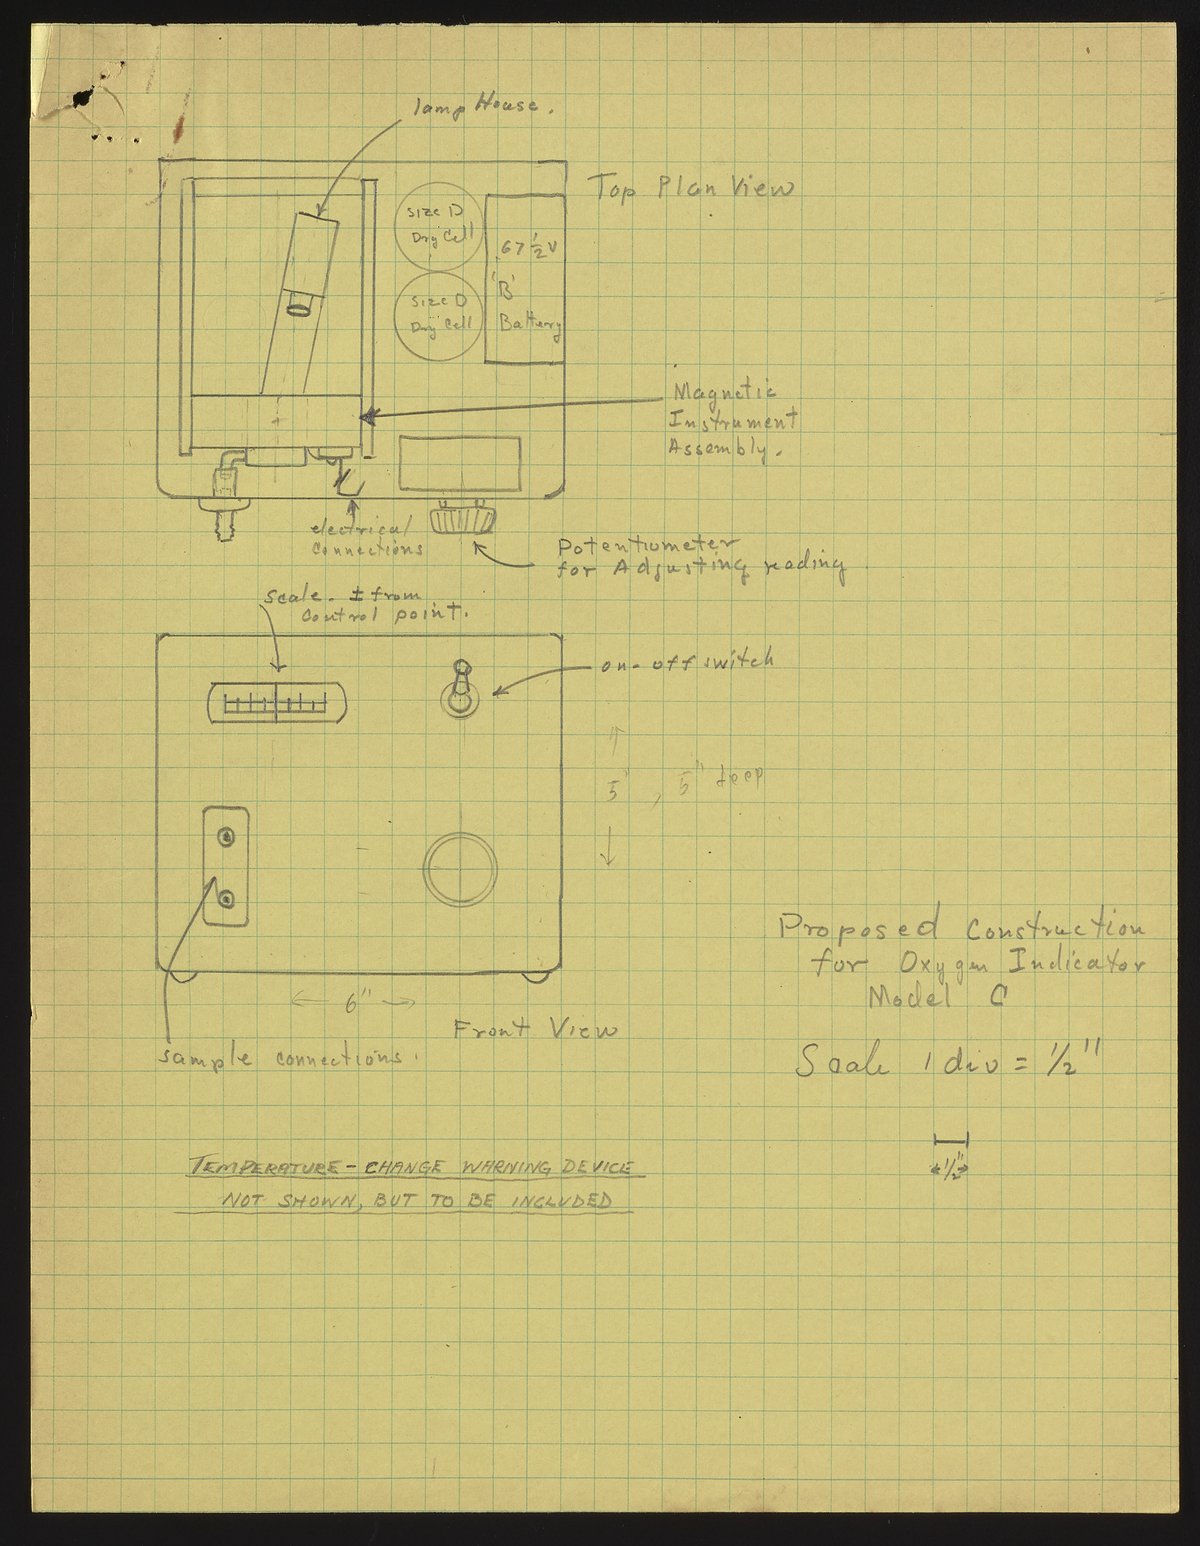 lamp House.
Top Plan View
Size D
Dry Cell
67 ½ V
'B'
Battery
Size D
Dry Cell
Magnetic
Instrument
Assembly.
electrical
connections
Potentiometer
for Adjusting reading
scale. ± from
control point.
on-off switch
5" , 5" deep
6"
Front View
sample connections.
Proposed Construction
for Oxygen Indicator
Model C
Scale 1 div = 1/2"
1/2"
TEMPERATURE-CHANGE WARNING DEVICE
NOT SHOWN, BUT TO BE INCLUDED